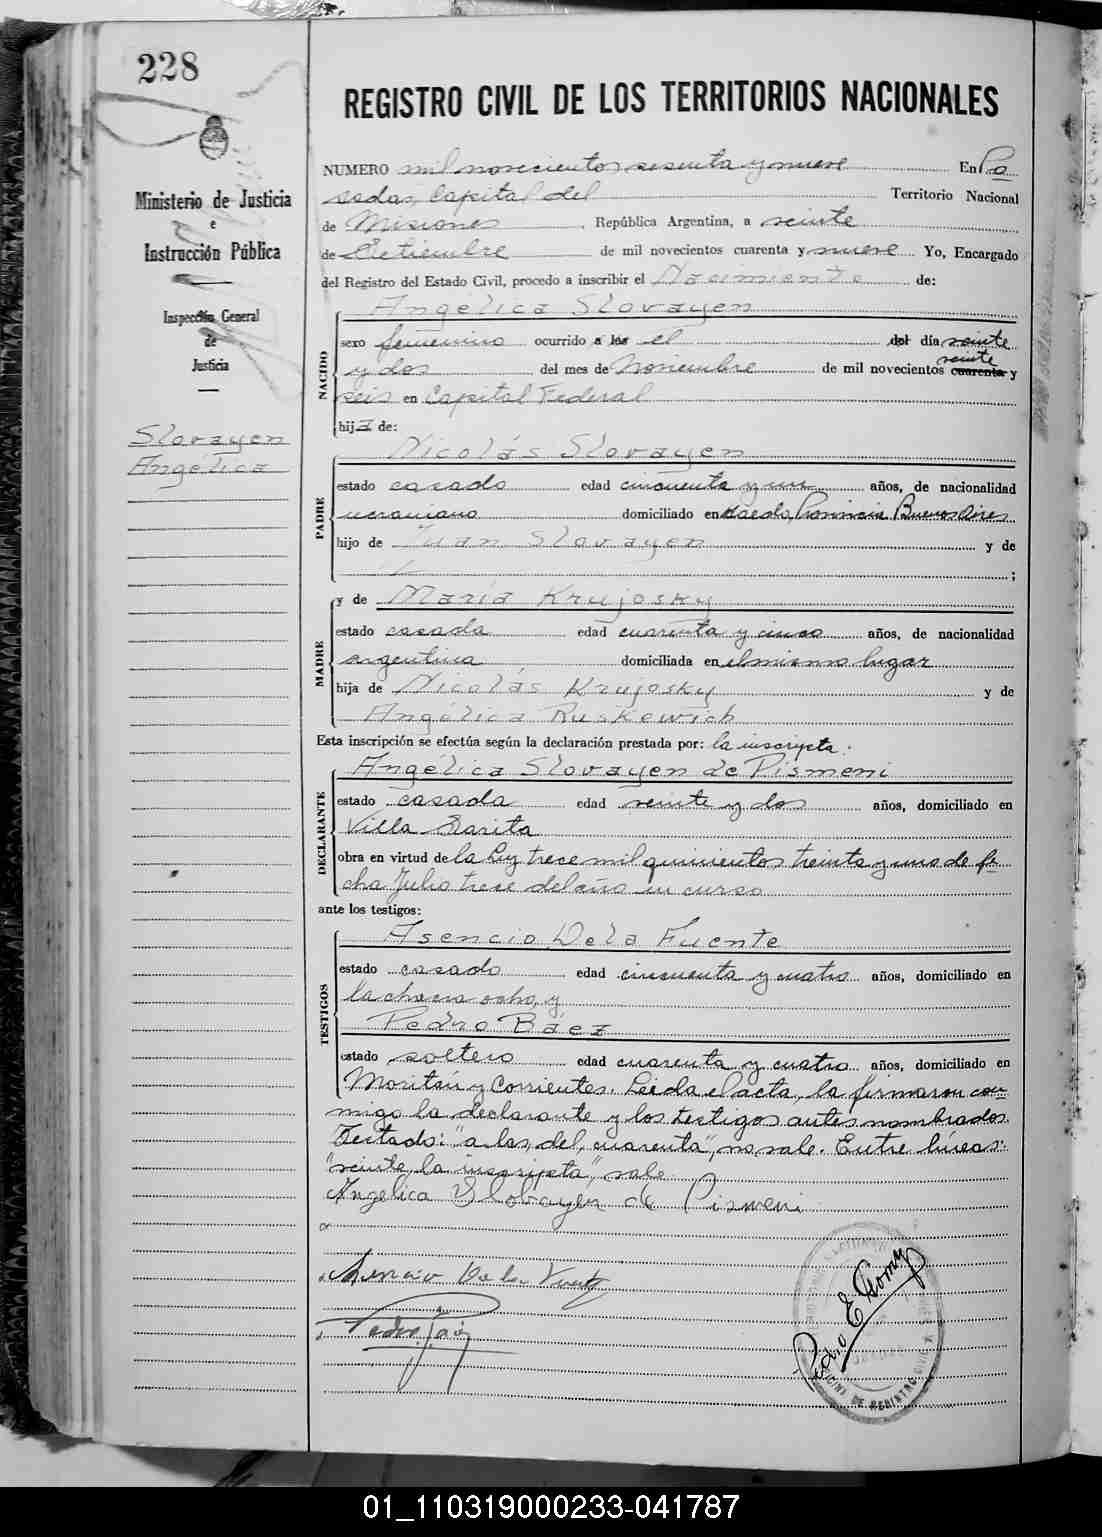 228
REGISTRO CIVIL DE LOS TERRITORIOS NACIONALES
Ministerio de Justicia
e
Instrucción Pública
Inspección General
de
Justicia
Slovayen
Angélica
NUMERO mil novecientos sesenta y nueve En Po
sadas, Capital del Territorio Nacional
de Misiones, República Argentina, a veinte
de Setiembre de mil novecientos cuarenta y nueve Yo, Encargado
del Registro del Estado Civil, procedo a inscribir el Nacimiento de:
Angélica Slovayen
NACIDO
sexo femenino ocurrido a las el del día veinte
veinte
y dos del mes de Noviembre de mil novecientos cuarenta y
seis en Capital Federal
hija de:
Nicolás Slovayen
PADRE
estado casado edad cincuenta y un años, de nacionalidad
ucraniano domiciliado en Haedo, Provincia Buenos Aires
hijo de Juan Slovayen y de
;
y de María Krujosky
MADRE
estado casada edad cuarenta y cinco años, de nacionalidad
argentina domiciliada en el mismo lugar
hija de Nicolás Krujosky y de
Angélica Ruskewich
Esta inscripción se efectúa según la declaración prestada por: la inscripta.
Angélica Slovayen de Pismeni
DECLARANTE
estado casada edad veinte y dos años, domiciliado en
Villa Sarita
obra en virtud de la Ley trece mil quinientos treinta y uno de fe
cha Julio trece del año en curso
ante los testigos:
Asencio Dela Fuente
TESTIGOS
estado casado edad cincuenta y cuatro años, domiciliado en
la chacra ocho, y
Pedro Báez
estado soltero edad cuarenta y cuatro años, domiciliado en
Moritán y Corrientes. Leida el acta, la firmaron con
migo la declarante y los testigos antes nombrados.
Testado: "a las, del, cuarenta", no vale. Entre líneas:
"veinte, la inscripta", vale.
Angelica Slovayen de Pismeni
Asencio De la Fuente
Pedro Báez
Pedro E Gomez
OFICINA DE REGISTRO CIVIL
01_110319000233-041787